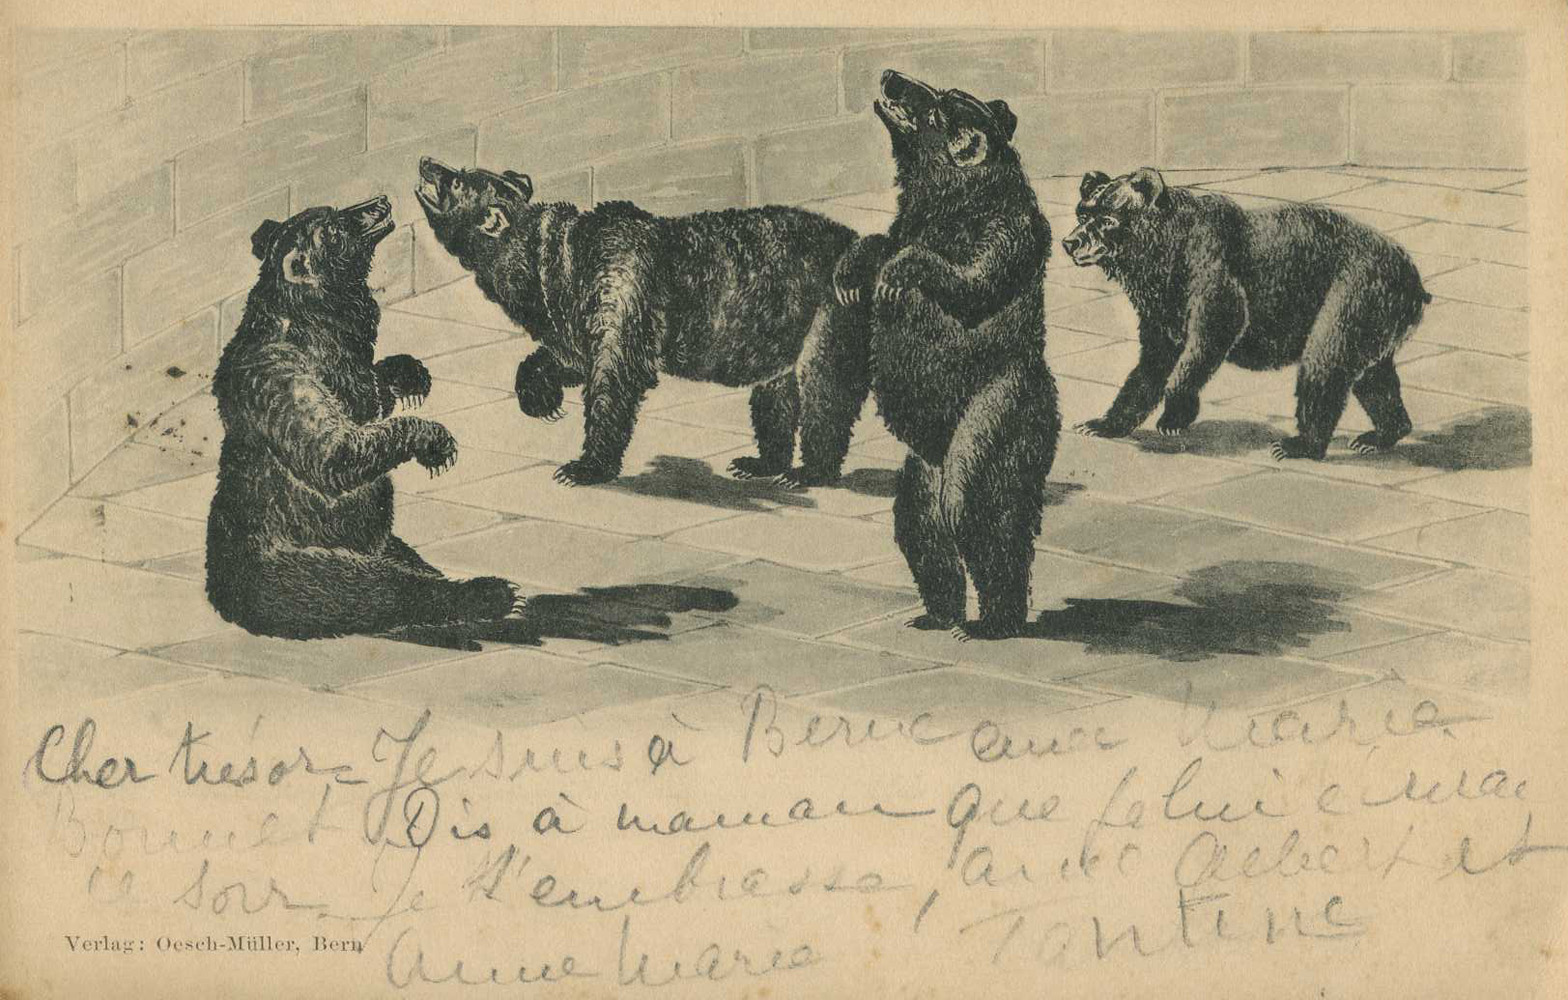 Cher trésor = Je suis à Berne avec Marie
Bonnet Dis à maman que je lui écrirai
ce soir. Je t'embrasse, avec Aelbert et
Verlag: Oesch-Müller, Bern
Anne Marie Tantine